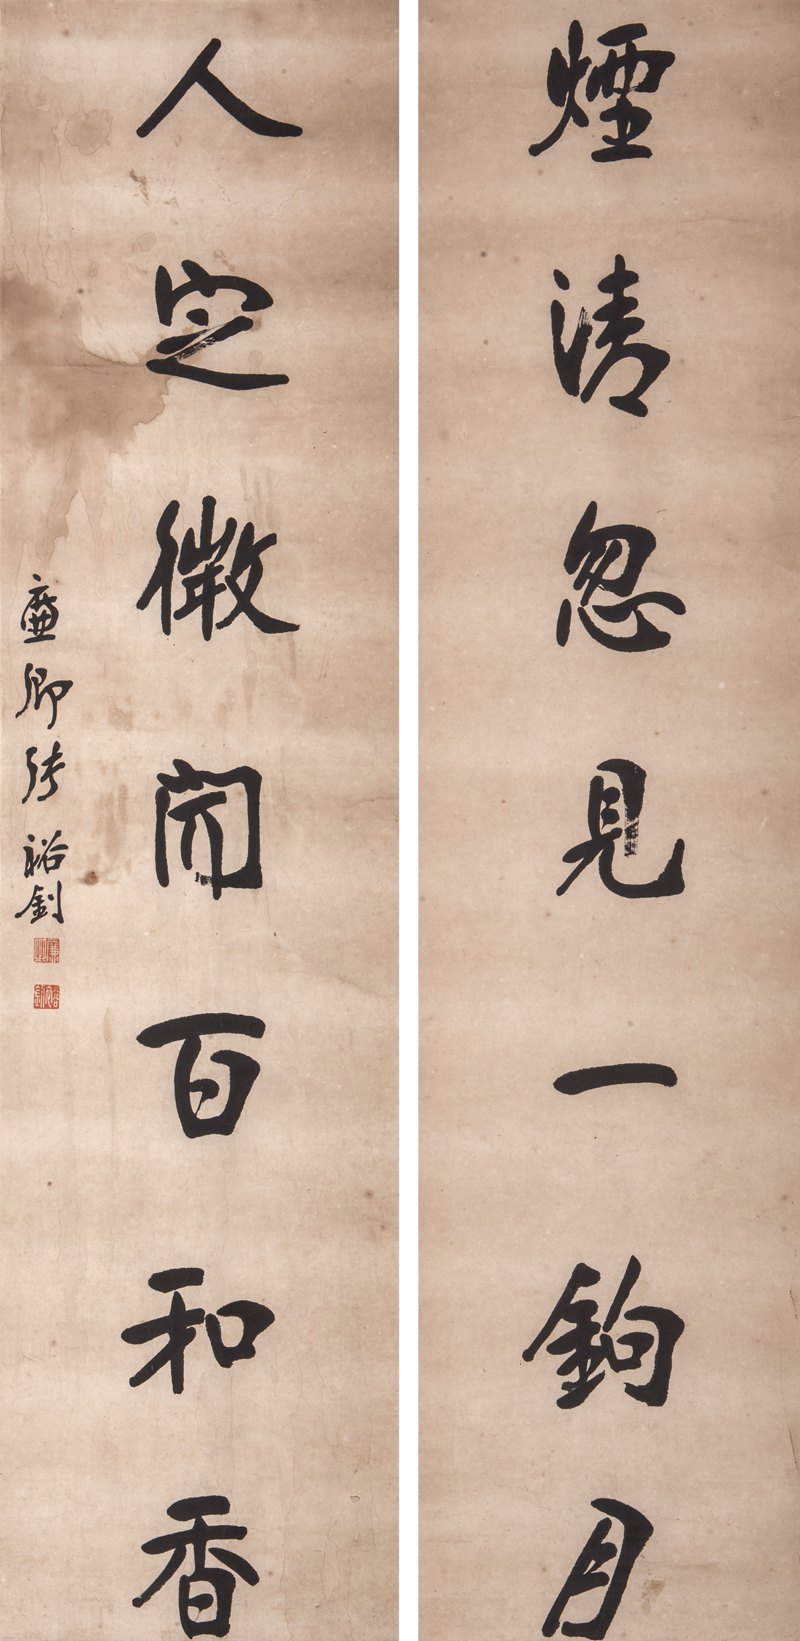 煙清忽見一鉤月
人定微聞百和香
廉卿張裕釗